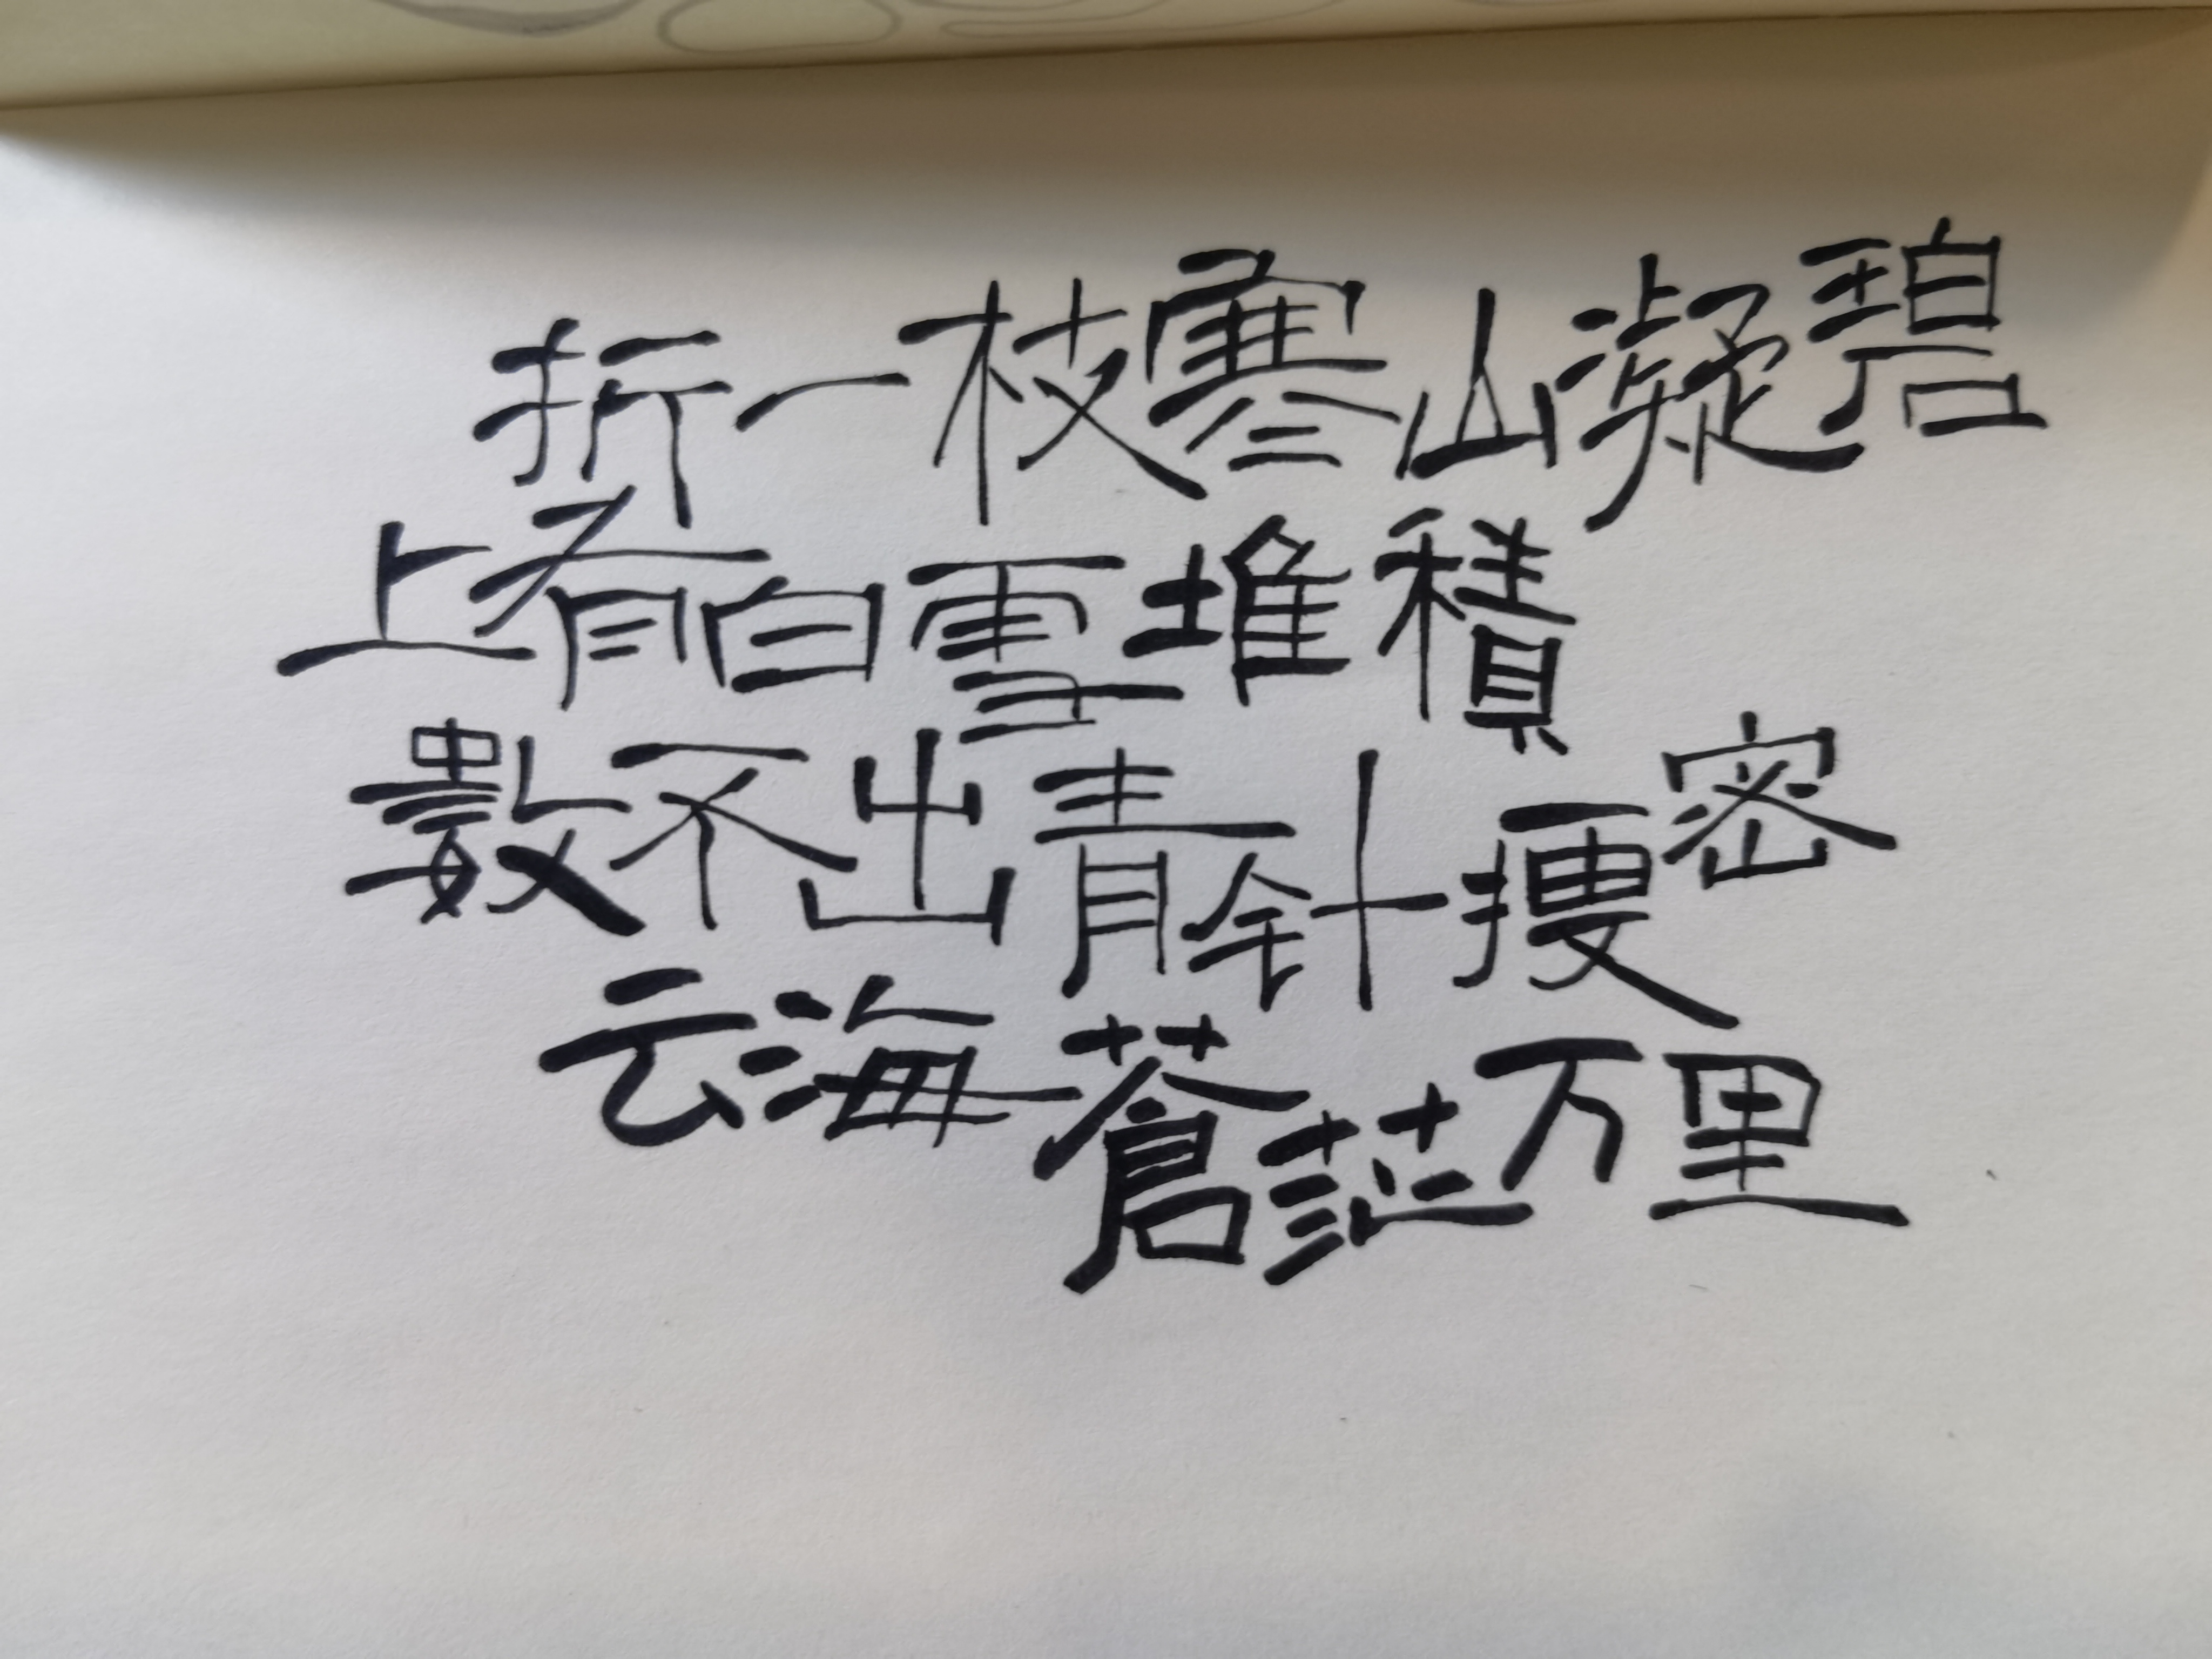 折一枝寒山凝碧
上有白雪堆積
數不出青针密
云海蒼茫万里